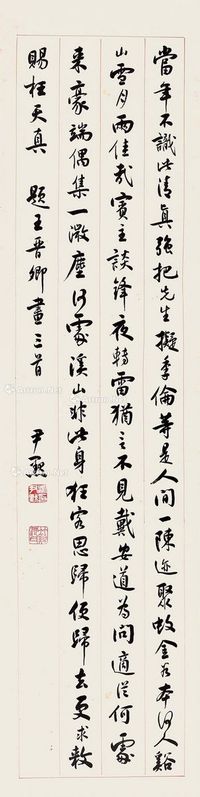 當年不識此清真強把先生擬季倫等是人間一陳迹聚蚊金谷本何人谿
山雪月兩佳哉賓主談鋒夜轉雷猶言不見戴安道為問適從何處
來豪端偶集一微塵何處溪山非此身狂客思歸便歸去更求敕
賜枉天真 題王晉卿畫三首
尹默